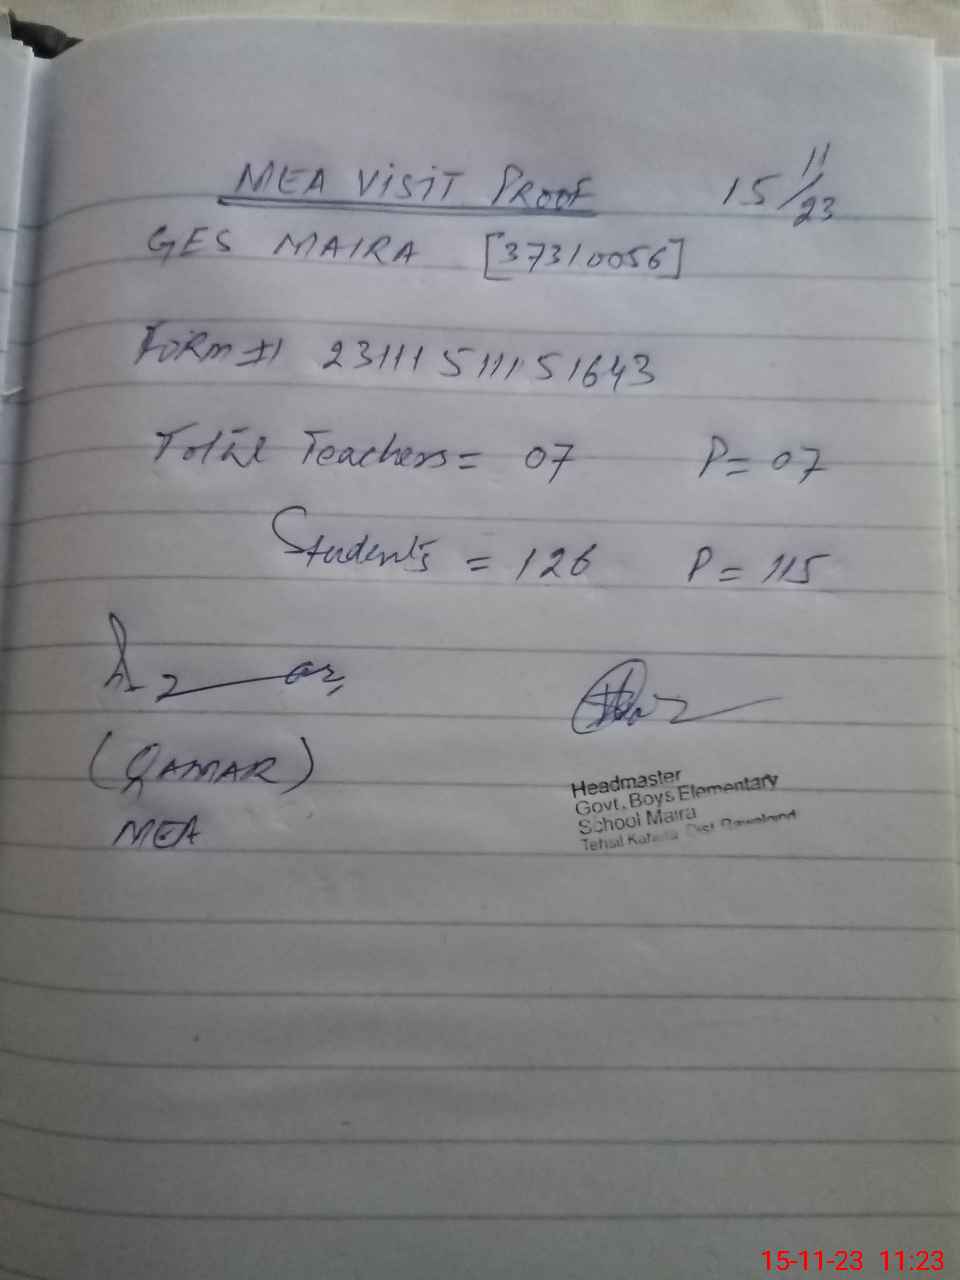 MEA VISIT PROOF 15/11/23
GES MAIRA [37310056]
FORM #1 23111511151643
Total Teachers = 07 P = 07
Students = 126 P = 115
(QAMAR)
MEA
Headmaster
Govt. Boys Elementary
School Maira
Tehsil Dist
15-11-23 11:23